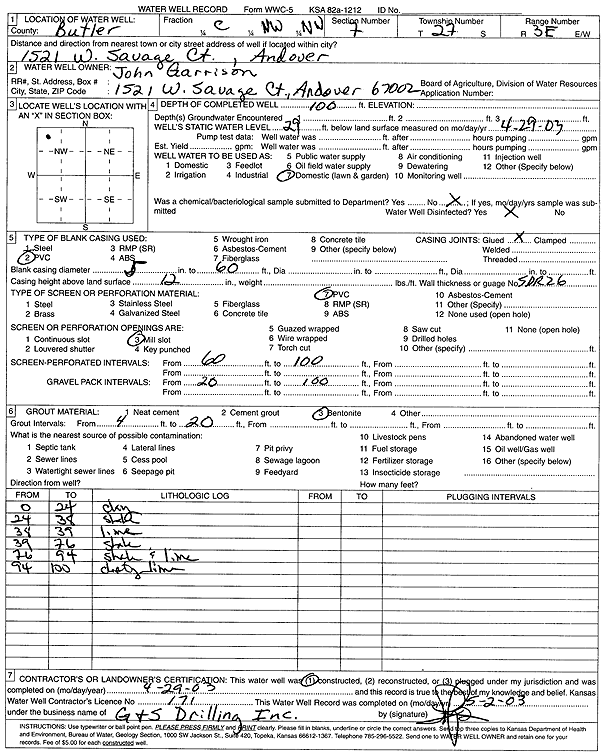 WATER WELL RECORD Form WWC-5 KSA 82a-1212 ID No.
1 LOCATION OF WATER WELL: Fraction Section Number Township Number Range Number
County: Butler ¼ C ¼ NW ¼ NW ¼ 7 T 27 S R 3E E/W
Distance and direction from nearest town or city street address of well if located within city?
1521 W. Savage Ct., Andover
2 WATER WELL OWNER: John Garrison
RR#, St. Address, Box # : 1521 W. Savage Ct., Andover 67002 Board of Agriculture, Division of Water Resources
City, State, ZIP Code : Application Number:
3 LOCATE WELL'S LOCATION WITH AN "X" IN SECTION BOX:
N
NW NE
W E
SW SE
S
4 DEPTH OF COMPLETED WELL 100 ft. ELEVATION:
Depth(s) Groundwater Encountered 1 ft. 2 ft. 3 ft.
WELL'S STATIC WATER LEVEL 29 ft. below land surface measured on mo/day/yr 4-29-03
Pump test data: Well water was ft. after hours pumping gpm
Est. Yield gpm: Well water was ft. after hours pumping gpm
WELL WATER TO BE USED AS: 5 Public water supply 8 Air conditioning 11 Injection well
1 Domestic 3 Feedlot 6 Oil field water supply 9 Dewatering 12 Other (Specify below)
2 Irrigation 4 Industrial 7 Domestic (lawn & garden) 10 Monitoring well
Was a chemical/bacteriological sample submitted to Department? Yes No X; If yes, mo/day/yrs sample was submitted
Water Well Disinfected? Yes X No
5 TYPE OF BLANK CASING USED: 5 Wrought iron 8 Concrete tile CASING JOINTS: Glued X Clamped
1 Steel 3 RMP (SR) 6 Asbestos-Cement 9 Other (specify below) Welded
2 PVC 4 ABS 7 Fiberglass Threaded
Blank casing diameter 5 in. to 60 ft., Dia in. to ft., Dia in. to ft.
Casing height above land surface 12 in., weight lbs./ft. Wall thickness or guage No. SDR26
TYPE OF SCREEN OR PERFORATION MATERIAL: 7 PVC 10 Asbestos-Cement
1 Steel 3 Stainless Steel 5 Fiberglass 8 RMP (SR) 11 Other (Specify)
2 Brass 4 Galvanized Steel 6 Concrete tile 9 ABS 12 None used (open hole)
SCREEN OR PERFORATION OPENINGS ARE: 5 Guazed wrapped 8 Saw cut 11 None (open hole)
1 Continuous slot 3 Mill slot 6 Wire wrapped 9 Drilled holes
2 Louvered shutter 4 Key punched 7 Torch cut 10 Other (specify) ft.
SCREEN-PERFORATED INTERVALS: From 60 ft. to 100 ft., From ft. to ft.
From ft. to ft., From ft. to ft.
GRAVEL PACK INTERVALS: From 20 ft. to 100 ft., From ft. to ft.
From ft. to ft., From ft. to ft.
6 GROUT MATERIAL: 1 Neat cement 2 Cement grout 3 Bentonite 4 Other
Grout Intervals: From 4 ft. to 20 ft., From ft. to ft., From ft. to ft.
What is the nearest source of possible contamination: 10 Livestock pens 14 Abandoned water well
1 Septic tank 4 Lateral lines 7 Pit privy 11 Fuel storage 15 Oil well/Gas well
2 Sewer lines 5 Cess pool 8 Sewage lagoon 12 Fertilizer storage 16 Other (specify below)
3 Watertight sewer lines 6 Seepage pit 9 Feedyard 13 Insecticide storage
Direction from well? How many feet?
FROM TO LITHOLOGIC LOG FROM TO PLUGGING INTERVALS
0 24 clay
24 38 shale
38 39 lime
39 76 shale
76 94 shale & lime
94 100 lime
7 CONTRACTOR'S OR LANDOWNER'S CERTIFICATION: This water well was (1) constructed, (2) reconstructed, or (3) plugged under my jurisdiction and was
completed on (mo/day/year) 4-29-03 and this record is true to the best of my knowledge and belief. Kansas
Water Well Contractor's Licence No 171 This Water Well Record was completed on (mo/day/yr) 5-2-03
under the business name of G&S Drilling Inc. by (signature)
INSTRUCTIONS: Use typewriter or ball point pen. PLEASE PRESS FIRMLY and PRINT clearly. Please fill in blanks, underline or circle the correct answers. Send top three copies to Kansas Department of Health
and Environment, Bureau of Water, Geology Section, 1000 SW Jackson St., Suite 420, Topeka, Kansas 66612-1367. Telephone 785-296-5522. Send one to WATER WELL OWNER and retain one for your
records. Fee of $5.00 for each constructed well.